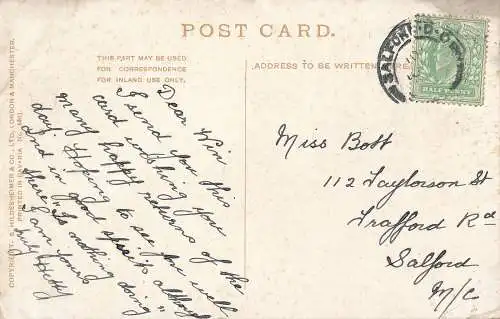 POST CARD.
THIS PART MAY BE USED
FOR CORRESPONDENCE
FOR INLAND USE ONLY.
ADDRESS TO BE WRITTEN
SALFORD
HALFPENNY
Dear Win
I send you this
card wishing you
many happy returns of the
day. Hoping to see you well
and in good spirits although
there "Is nothing doing"
I am yours
truly Hetty
Miss Bott
112 Taylorson St
Trafford Rd
Salford
M/C
COPYRIGHT. S. HILDESHEIMER & CO., LTD. LONDON & MANCHESTER.
PRINTED IN BAVARIA